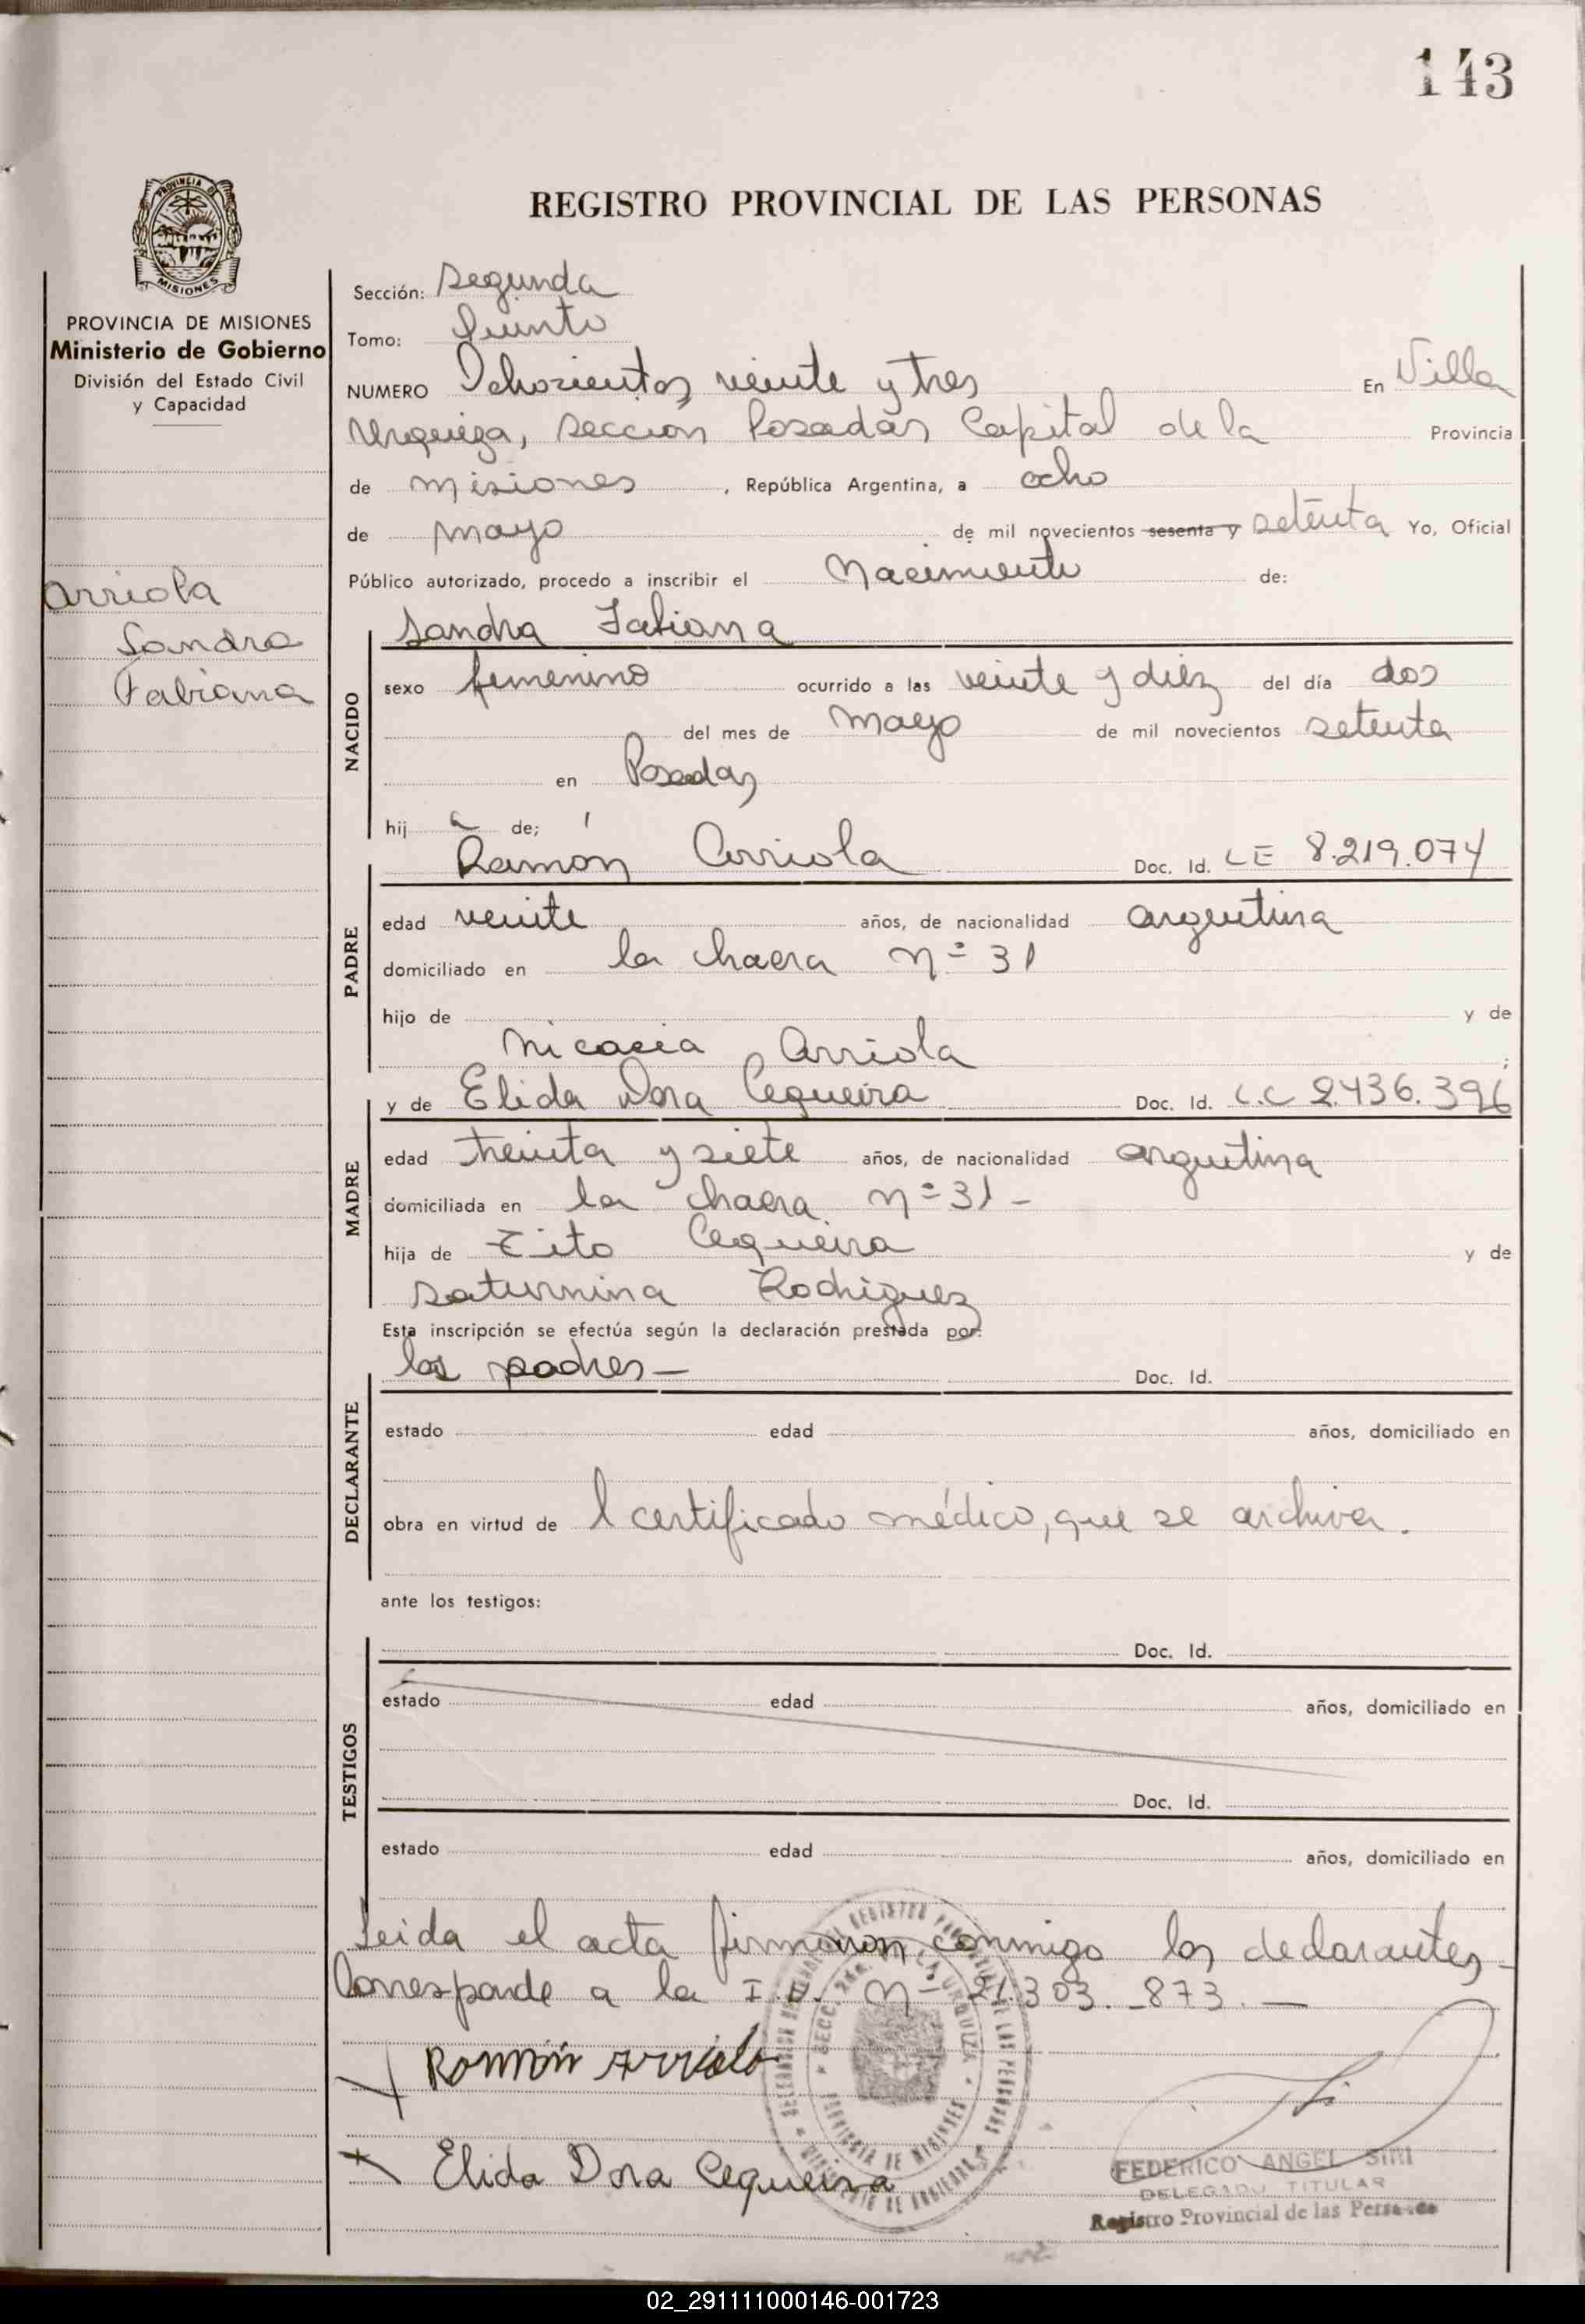 143
PROVINCIA DE
MISIONES
REGISTRO PROVINCIAL DE LAS PERSONAS
PROVINCIA DE MISIONES
Ministerio de Gobierno
División del Estado Civil
y Capacidad
Arriola
Sandra
Fabiana
Sección: Segunda
Tomo: Quinto
NUMERO Ochocientos veinte y tres En Villa
Urquiza, Sección Posadas Capital de la Provincia
de Misiones, República Argentina, a ocho
de Mayo de mil novecientos sesenta y setenta Yo, Oficial
Público autorizado, procedo a inscribir el Nacimiento de:
Sandra Fabiana
NACIDO
sexo femenino ocurrido a las veinte y diez del día dos
del mes de Mayo de mil novecientos setenta
en Posadas
hij a de;
Ramón Arriola Doc. Id. LE 8.219.074
PADRE
edad veinte años, de nacionalidad argentina
domiciliado en la chacra nº 31
hijo de y de
Nicacia Arriola ;
y de Elida Dora Cequeira Doc. Id. L.C 2.436.396
MADRE
edad treinta y siete años, de nacionalidad argentina
domiciliada en la chacra nº 31 -
hija de Tito Cequeira y de
Saturnina Rodriguez
Esta inscripción se efectúa según la declaración prestada por:
los padres - Doc. Id.
DECLARANTE
estado edad años, domiciliado en
obra en virtud de l certificado médico, que se archiva.
ante los testigos:
Doc. Id.
TESTIGOS
estado edad años, domiciliado en
Doc. Id.
estado edad años, domiciliado en
Leida el acta firmaron conmigo los declarantes -
Corresponde a la I.D. Nº 21.303.873. —
Ramón Arriola
Elida Dora Cequeira
FEDERICO ANGEL SIRI
DELEGADO TITULAR
Registro Provincial de las Personas
02_291111000146-001723